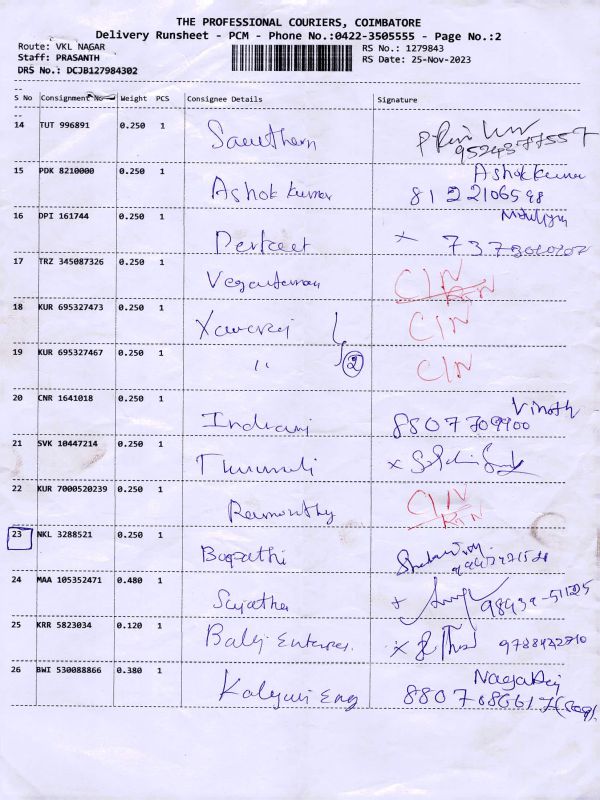 THE PROFESSIONAL COURIERS, COIMBATORE
Delivery Runsheet - PCM - Phone No.:0422-3505555 - Page No.:2
Route: VKL NAGAR RS No.: 1279843
Staff: PRASANTH RS Date: 25-Nov-2023
DRS No.: DCJB127984302
S No Consignment No Weight PCS Consignee Details Signature
14 TUT 996891 0.250 1 Sauthern 9524377557
15 PDK 8210000 0.250 1 Ashok kumar Ashok kumar
8122106598
16 DPI 161744 0.250 1
17 TRZ 345087326 0.250 1 CIN
18 KUR 695327473 0.250 1 CIN
19 KUR 695327467 0.250 1 " 2 CIN
20 CNR 1641018 0.250 1 Indrani Vinoth
8807709900
21 SVK 10447214 0.250 1 x
22 KUR 7000520239 0.250 1 Ramonthy CIN
23 NKL 3288521 0.250 1 Bopathi
24 MAA 105352471 0.480 1 Sujatha 98439-51125
25 KRR 5823034 0.120 1 x 9788432710
26 BWI 530088866 0.380 1 Kalyani Eng Nagaraj